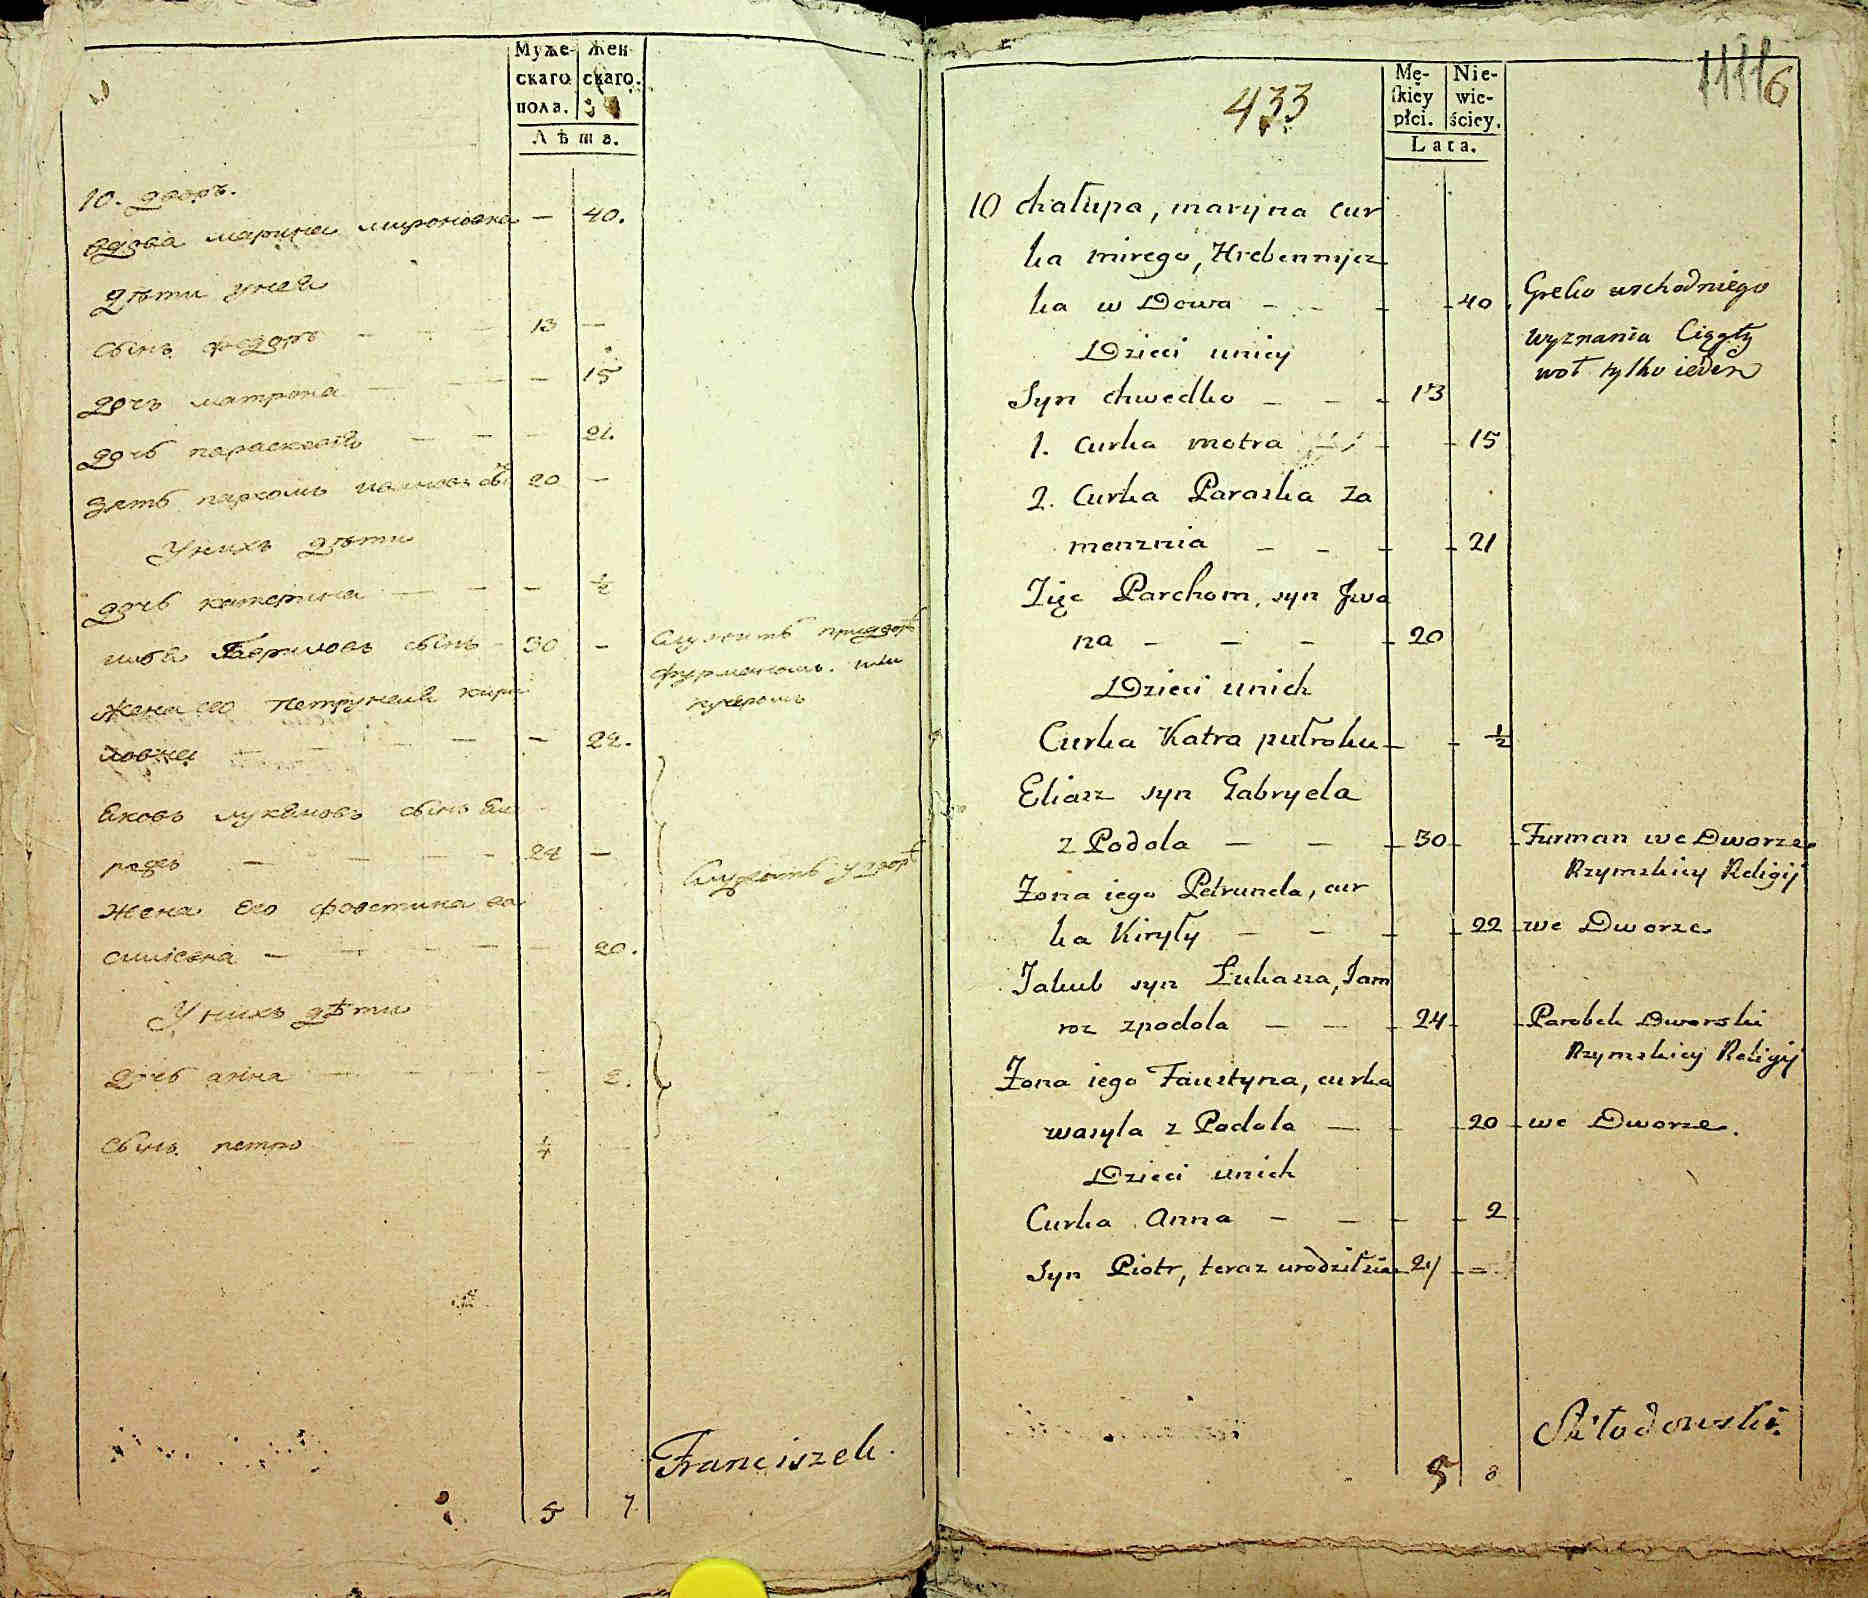 Муже-
скаго
пола.
Жен
скаго.
Лѣта.
10. дворъ.
вдова марина мироновна — 40.
дѣти унея
сынъ федоръ — — — 13 —
дочь матрона — — — 15
дочь параскевия — — — 21.
зять пархомъ ивановъ сынъ 20 —
Унихъ дѣти
дочь катерина — — — ½
илья Гавриловъ сынъ — 30 —
служитъ придворѣ
фурманомъ. или
кучеромъ
жена его петрунеля кири
ловна — — — 22.
яковъ лукяновъ сынъ
— — — 24 —
Служатъ у дворѣ
жена его фовстина ва
силіевна — — — 20.
Унихъ дѣти
дочь анна — — — 2.
сынъ петро — ¼
Franciszek.
5 7
433
6
Mę-
skiey
płci.
Nie-
wie-
ściey.
Lata.
10 chałupa, maryna cur
ka mirego, Hrebennycz
ka w Dowa — — — 40
Greko wschodniego
wyznania Ciągły
woł tylko ieden
Dzieci unicy
Syn chwedko — — — 13
1. Curka motra — — 15
2. Curka Paraska Za
menznia — — — 21
Zięc Parchom, syn Jwa
na — — — 20
Dzieci unich
Curka Katra pułroku — — ½
Eliasz syn Gabryela
z Podola — — — 30 — Furman we Dworze
Rzymskicy Religij
Zona iego Petrunela, cur
ka Kiryły — — — 22 we Dworze
Jakub syn Łukasza, Jam
roz zpodola — — — 24 — Parobek Dworski
Rzymskicy Religij
Zona iego Faustyna, curka
wasyla z Podola — — 20 we Dworze.
Dzieci unich
Curka Anna — — — 2
Syn Piotr, teraz urodziłsie — —
Skłodowski.
5 8